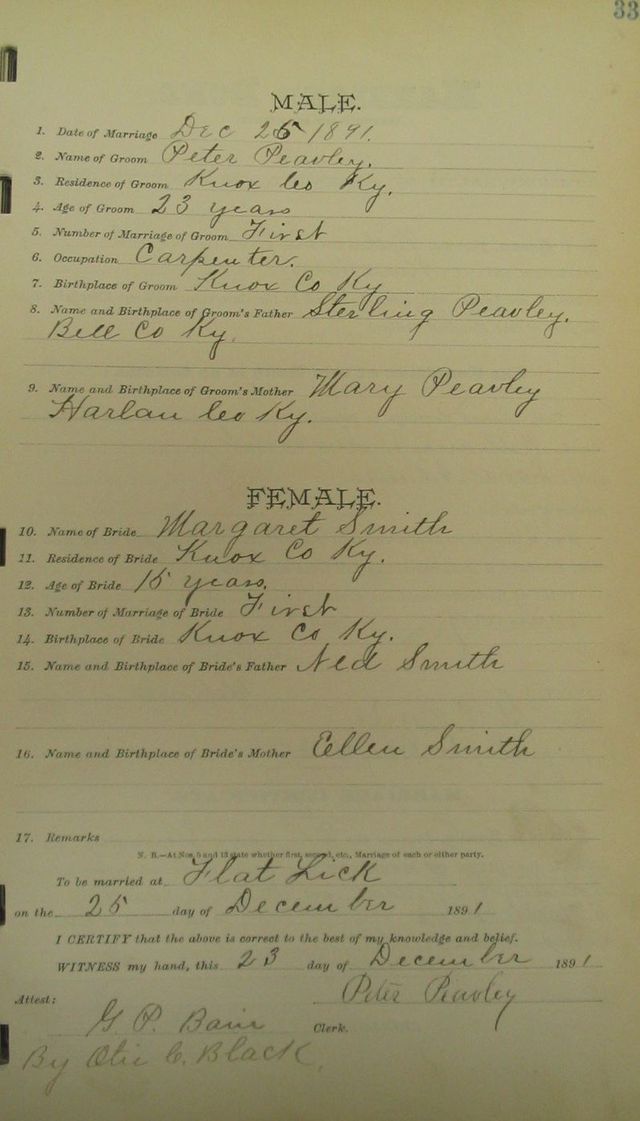 33
MALE.
1. Date of Marriage Dec 25 1891.
2. Name of Groom Peter Peavley.
3. Residence of Groom Knox Co Ky.
4. Age of Groom 23 years
5. Number of Marriage of Groom First
6. Occupation Carpenter.
7. Birthplace of Groom Knox Co Ky
8. Name and Birthplace of Groom's Father Sterling Peavley.
Bell Co Ky.
9. Name and Birthplace of Groom's Mother Mary Peavley
Harlan Co Ky.
FEMALE.
10. Name of Bride Margaret Smith
11. Residence of Bride Knox Co Ky.
12. Age of Bride 15 years.
13. Number of Marriage of Bride First
14. Birthplace of Bride Knox Co Ky.
15. Name and Birthplace of Bride's Father Ned Smith
16. Name and Birthplace of Bride's Mother Ellen Smith
17. Remarks
N. B.—At Nos. 5 and 13 state whether first, second, etc., Marriage of each or either party.
To be married at Flat Lick
on the 25 day of December 1891
I CERTIFY that the above is correct to the best of my knowledge and belief.
WITNESS my hand, this 23 day of December 1891
Peter Peavley
Attest:
G. P. Bain Clerk.
By Otis C. Black.